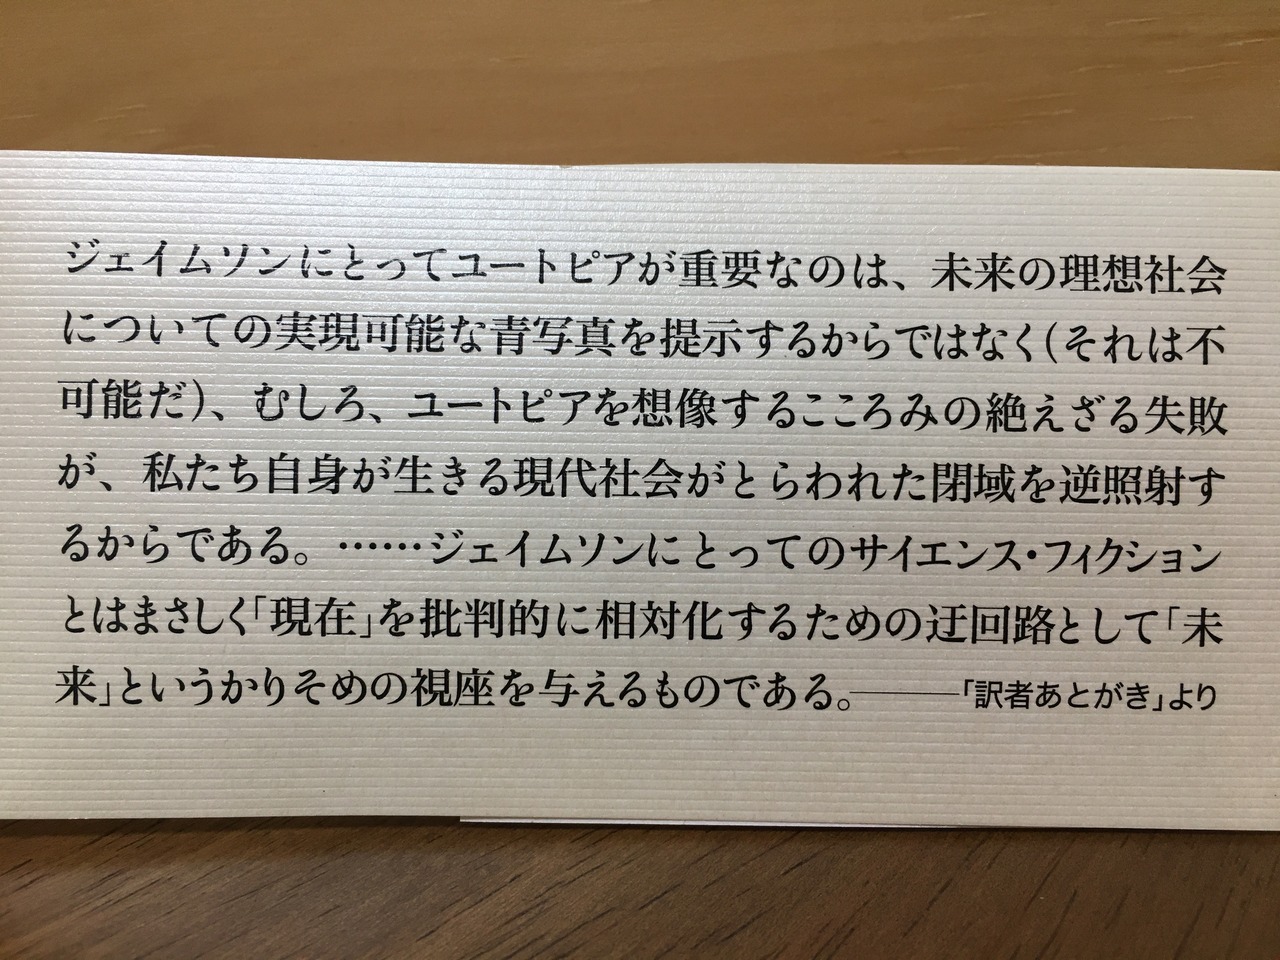 ジェイムソンにとってユートピアが重要なのは、未来の理想社会
についての実現可能な青写真を提示するからではなく(それは不
可能だ)、むしろ、ユートピアを想像するこころみの絶えざる失敗
が、私たち自身が生きる現代社会がとらわれた閉域を逆照射す
るからである。……ジェイムソンにとってのサイエンス・フィクション
とはまさしく「現在」を批判的に相対化するための迂回路として「未
来」というかりそめの視座を与えるものである。――「訳者あとがき」より